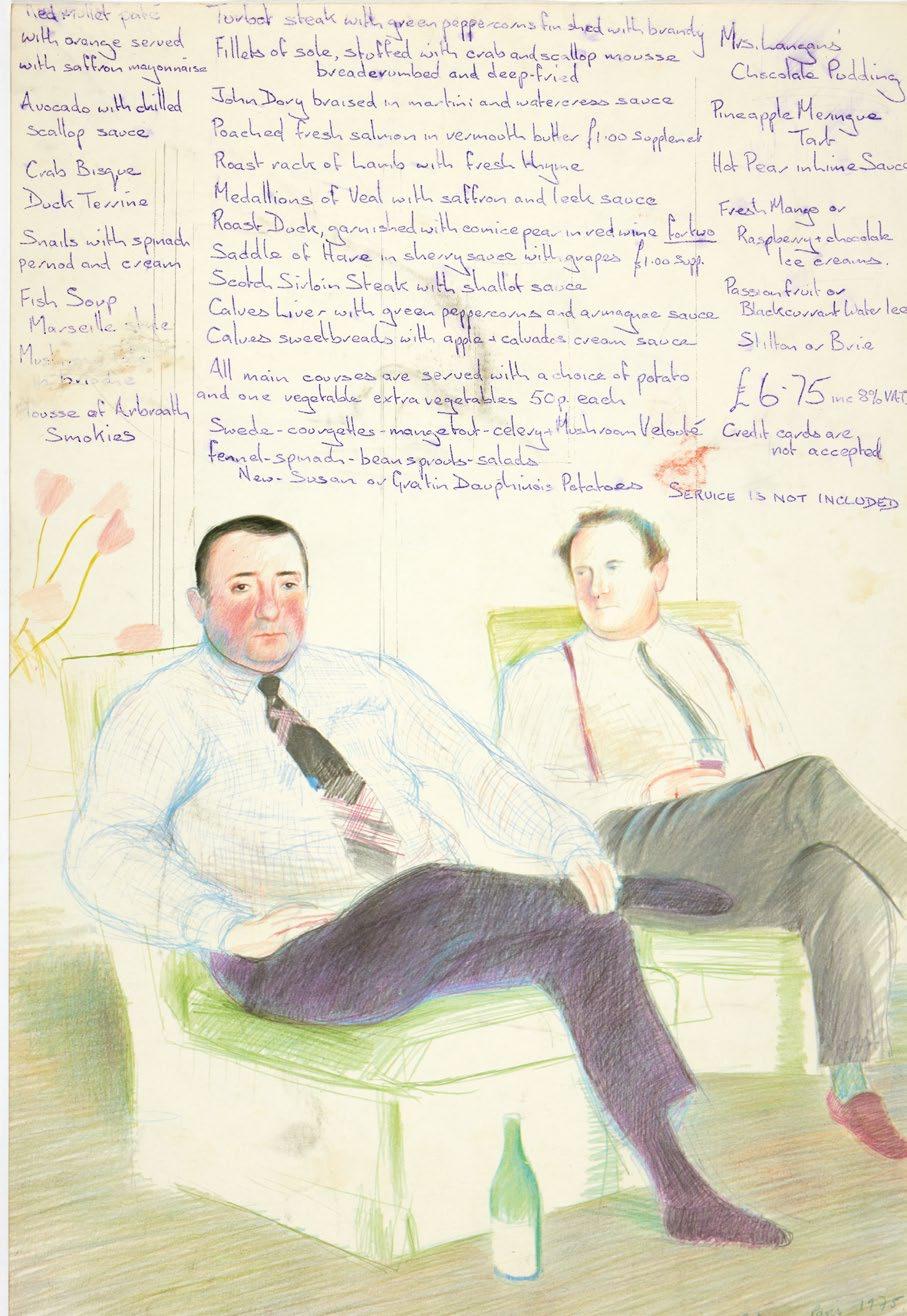 Red mullet paté
with orange served
with saffron mayonnaise
Avocado with chilled
scallop sauce
Crab Bisque
Duck Terrine
Snails with spinach
pernod and cream
Fish Soup
Marseille style
in brioche
Mousse of Arbroath
Smokies
Turbot steak with green peppercorns finished with brandy
Fillets of sole, stuffed with crab and scallop mousse
breadcrumbed and deep-fried
John Dory braised in martini and watercress sauce
Poached fresh salmon in vermouth butter £1.00 Supplement
Roast rack of Lamb with fresh thyme
Medallions of Veal with saffron and leek sauce
Roast Duck, garnished with comice pear in red wine for two
Saddle of Hare in sherry sauce with grapes £1.00 Supp.
Scotch Sirloin Steak with shallot sauce
Calves Liver with green peppercorns and armagnac sauce
Calves sweetbreads with apple + calvados cream sauce
All main courses are served with a choice of potato
and one vegetable extra vegetables 50p. each
Swede - courgettes - mangetout - celery + Mushroom Velouté
fennel - spinach - beansprouts - salads
New - Susan or Gratin Dauphinois Potatoes
Mrs. Langan's
Chocolate Pudding
Pineapple Meringue
Tart
Hot Pear in Lime Sauce
Fresh Mango or
Raspberry + chocolate
Ice creams.
Passionfruit or
Blackcurrant Water Ice
Stilton or Brie
£6.75 inc 8% VAT
Credit cards are
not accepted
SERVICE IS NOT INCLUDED
1975